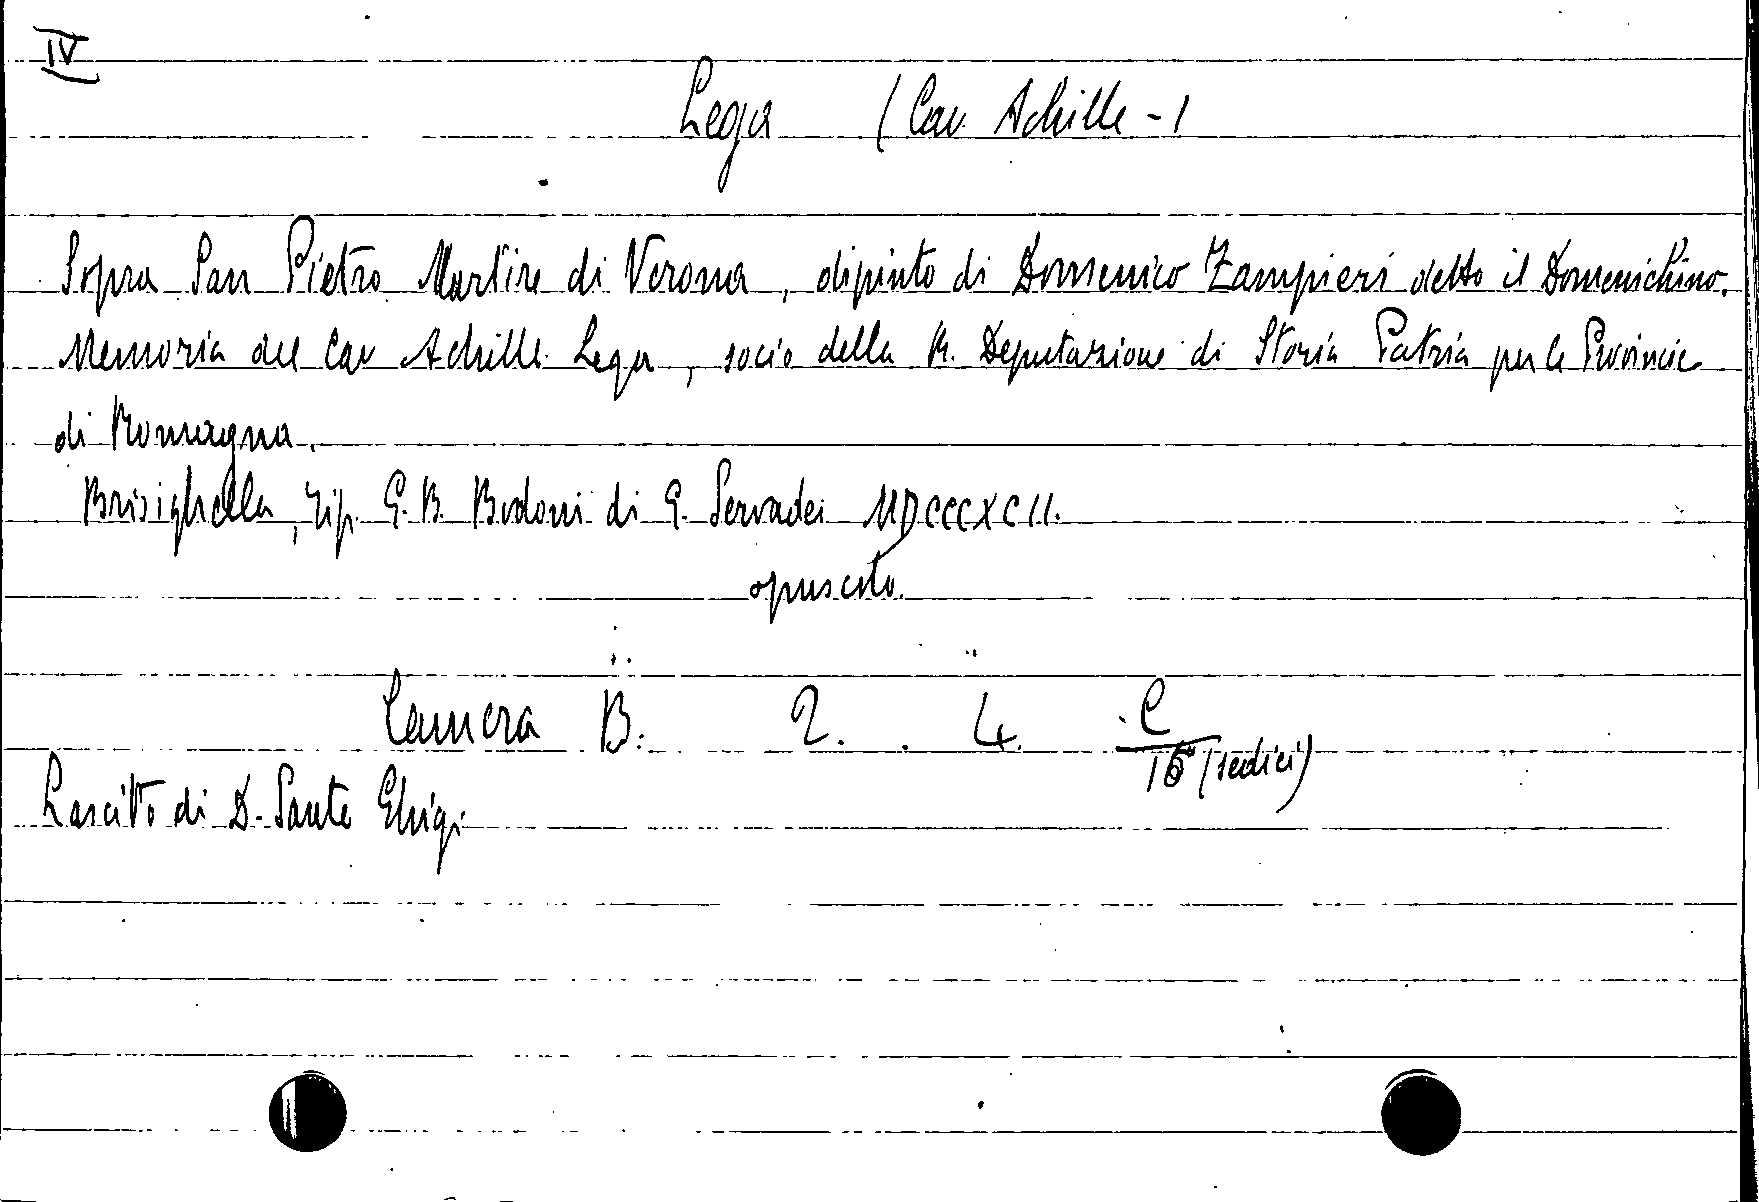 IV
Lega (Cav. Achille -)
Sopra San Pietro Martire di Verona, dipinto di Domenico Zampieri detto il Domenichino.
Memoria del Cav Achille Lega, socio della R. Deputazione di Storia Patria per le Provincie
di Romagna.
Brisighella, Tip. G. B. Bodoni di G. Servadei MDCCCXCII.
opuscolo.
Camera B. 2. 4. C
16 (sedici)
Lascito di D. Sante